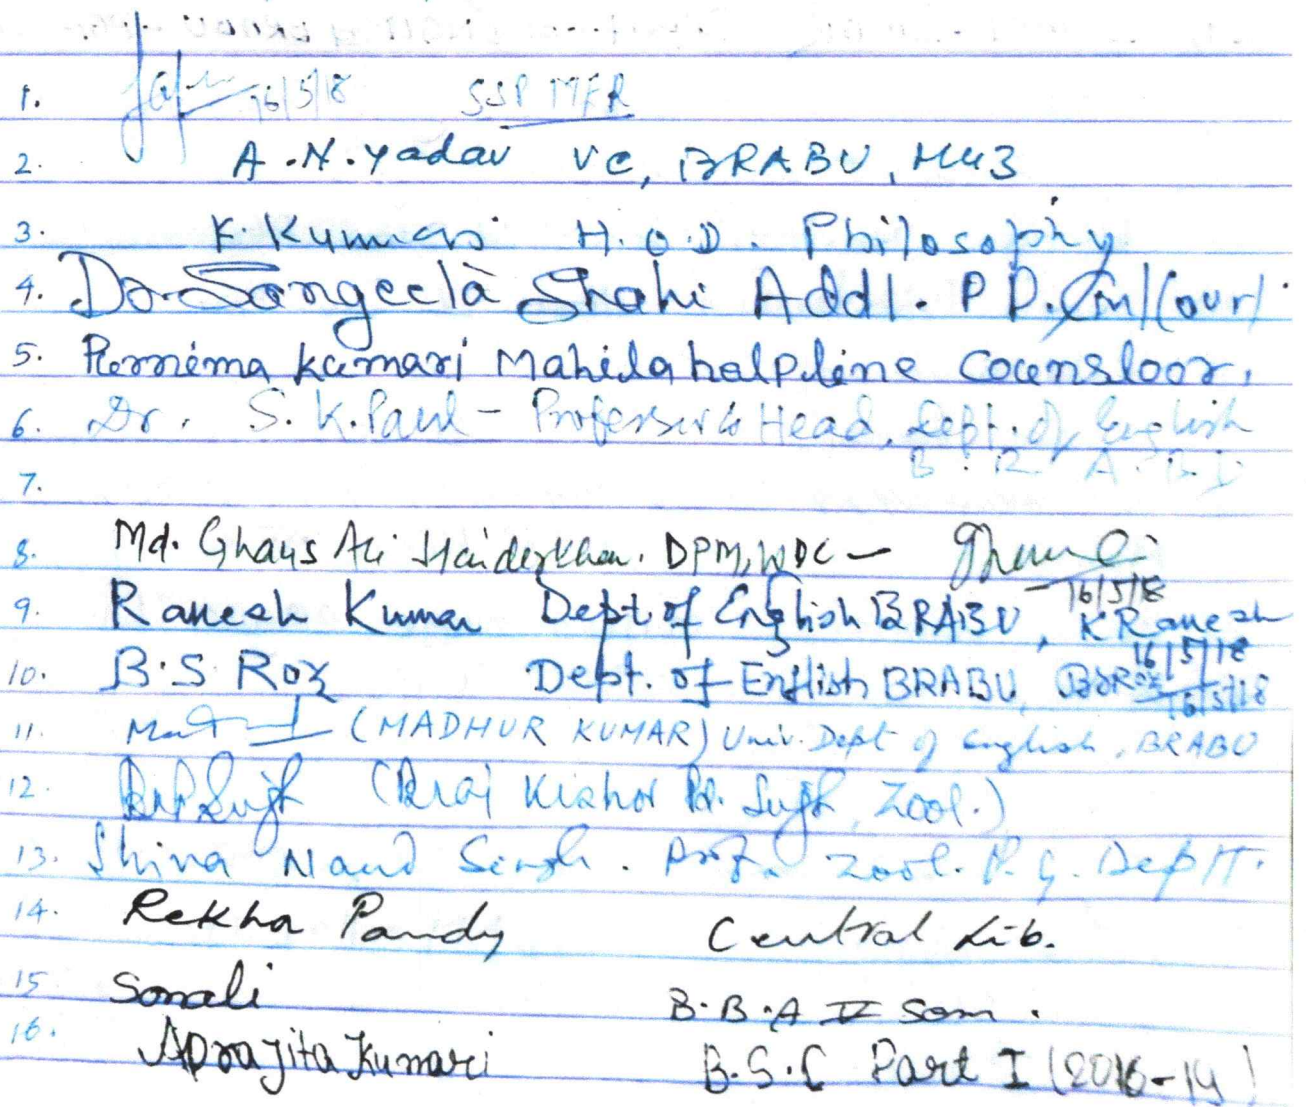 1. 16/5/18 SSP MFR
2. A.N. Yadav VC, BRABU, Muz
3. K. Kumari H.O.D. Philosophy
4. Dr. Sangeeta Shahi Addl. P.P. Court
5. Purnima Kumari Mahila helpline Counsloor,
6. Dr. S. K. Paul - Professor & Head, Dept. of English
B. R. A. B. U
7.
8. Md. Ghaus Ali Haider Khan. DPM, WDC -
16/5/18
9. Ranesh Kumar Dept of English BRABU, K Ranesh
16/5/18
10. B.S Roy Dept. of English BRABU, BSRoy
16/5/18
11. (MADHUR KUMAR) Univ. Dept of English, BRABU
12. (Braj Kishor Pd. Singh, Zool.)
13. Shiva Nand Singh. Prof. Zool. P.G. Deptt.
14. Rekha Pandy Central Lib.
15 Sonali B.B.A V Sem.
16. Aprajita Kumari B.S.C Part I (2016-19)